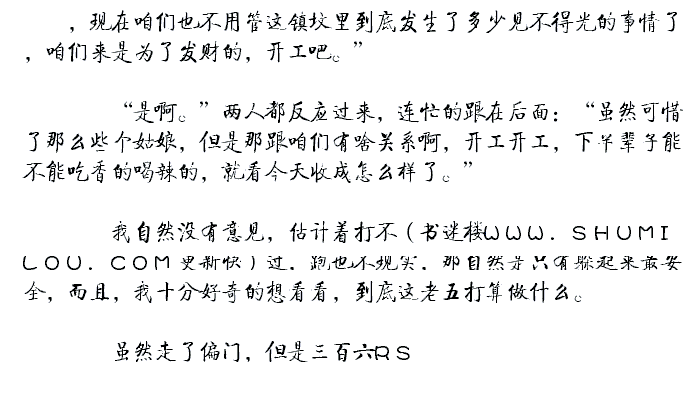 ，现在咱们也不用管这镇坟里到底发生了多少见不得光的事情了
，咱们来是为了发财的，开工吧。”
“是啊。”两人都反应过来，连忙的跟在后面：“虽然可惜
了那么些个姑娘，但是那跟咱们有啥关系啊，开工开工，下半辈子能
不能吃香的喝辣的，就看今天收成怎么样了。”
我自然没有意见，估计着打不（书迷楼ＷＷＷ．ＳＨＵＭＩ
ＬＯＵ．ＣＯＭ更新快）过，跑也不现实，那自然是只有躲起来最安
全，而且，我十分好奇的想看看，到底这老五打算做什么。
虽然走了偏门，但是三百六ＲＳ